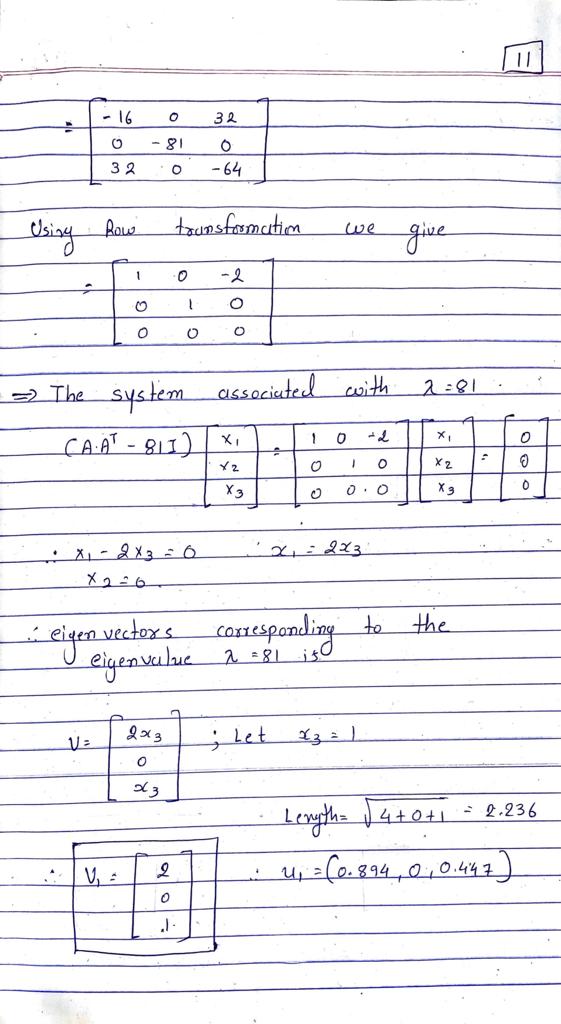 11
= [ -16 0 32
0 -81 0
32 0 -64 ]
Using Row transformation we give
= [ 1 0 -2
0 1 0
0 0 0 ]
⇒ The system associated with λ=81.
(A·Aᵀ - 81I) [ x₁ = [ 1 0 -2 [ x₁ = [ 0
x₂ 0 1 0 x₂ 0
x₃ ] 0 0 0 ] x₃ ] 0 ]
∴ x₁ - 2x₃ = 0 ∴ x₁ = 2x₃
x₂ = 0.
∴ eigen vectors corresponding to the
eigenvalue λ = 81 is
V = [ 2x₃ ; Let x₃ = 1
0
x₃ ]
Length = √4+0+1 = 2.236
∴ V₁ = [ 2 ∴ u₁ = (0.894, 0, 0.447)
0
1 ]